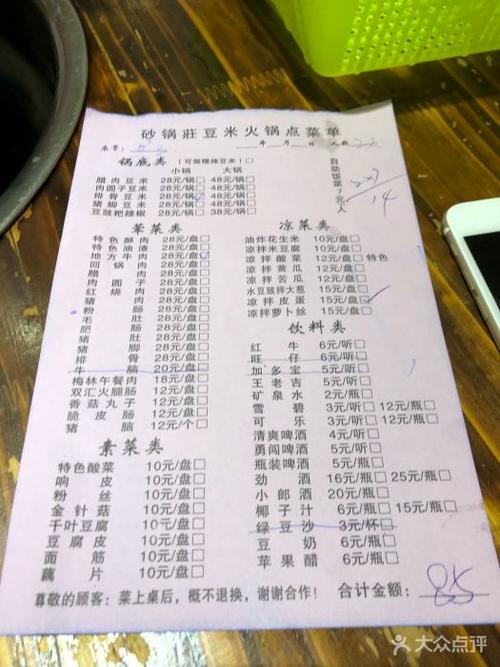 砂锅莊豆米火锅点菜单
桌号: 年 月 日 人数
锅底类 (可做糟辣豆米)□
小锅 大锅
腊肉豆米 28元/锅□ 48元/锅□
肉圆子豆米 28元/锅□ 48元/锅□
排骨豆米 28元/锅 48元/锅□
猪脚豆米 28元/锅□ 48元/锅□
豆豉粑辣椒 28元/锅□ 38元/锅□
自助饭菜7元/人
2×7
14
荤菜类
特色酥肉 28元/盘□
特色油渣 28元/盘□
地方牛肉 28元/盘
回锅肉 28元/盘□
腊肉 28元/盘□
肉圆子 28元/盘□
红烧肉 28元/盘□
猪肉 28元/盘□
粉肠 28元/盘□
毛肚 28元/盘□
肥肠 28元/盘□
猪肚 28元/盘□
猪脚 28元/盘□
排骨 28元/盘□
牛脑 20元/盘□
梅林午餐肉 18元/盘□
双汇火腿肠 12元/盘□
香菇丸子 12元/盘□
脆皮肠 12元/盘□
猪脑 12元/个□
素菜类
特色酸菜 10元/盘□
响皮 10元/盘□
粉丝 10元/盘□
金针菇 10元/盘□
千叶豆腐 10元/盘□
豆腐皮 10元/盘□
面筋 10元/盘□
藕片 10元/盘□
凉菜类
油炸花生米 10元/盘□
凉拌米豆腐 7元/盘□
凉拌酸菜 12元/盘□ 特色
凉拌黄瓜 12元/盘□
凉拌苦瓜 12元/盘□
水豆豉拌大葱 15元/盘□
凉拌皮蛋 15元/盘
凉拌萝卜丝 15元/盘□
饮料类
红牛 6元/听□
旺仔 6元/听□
加多宝 5元/听□
王老吉 5元/听□
矿泉水 2元/瓶□
雪碧 3元/听□ 12元/瓶□
可乐 3元/听□ 12元/瓶□
清爽啤酒 4元/听□
勇闯啤酒 5元/听□
瓶装啤酒 5元/瓶□
劲酒 16元/瓶□ 25元/瓶□
小郎酒 20元/瓶□
椰子汁 6元/瓶□ 15元/瓶□
绿豆沙 3元/杯□
豆奶 6元/瓶□
苹果醋 6元/瓶□
尊敬的顾客：菜上桌后，概不退换，谢谢合作！ 合计金额: 85
大众点评